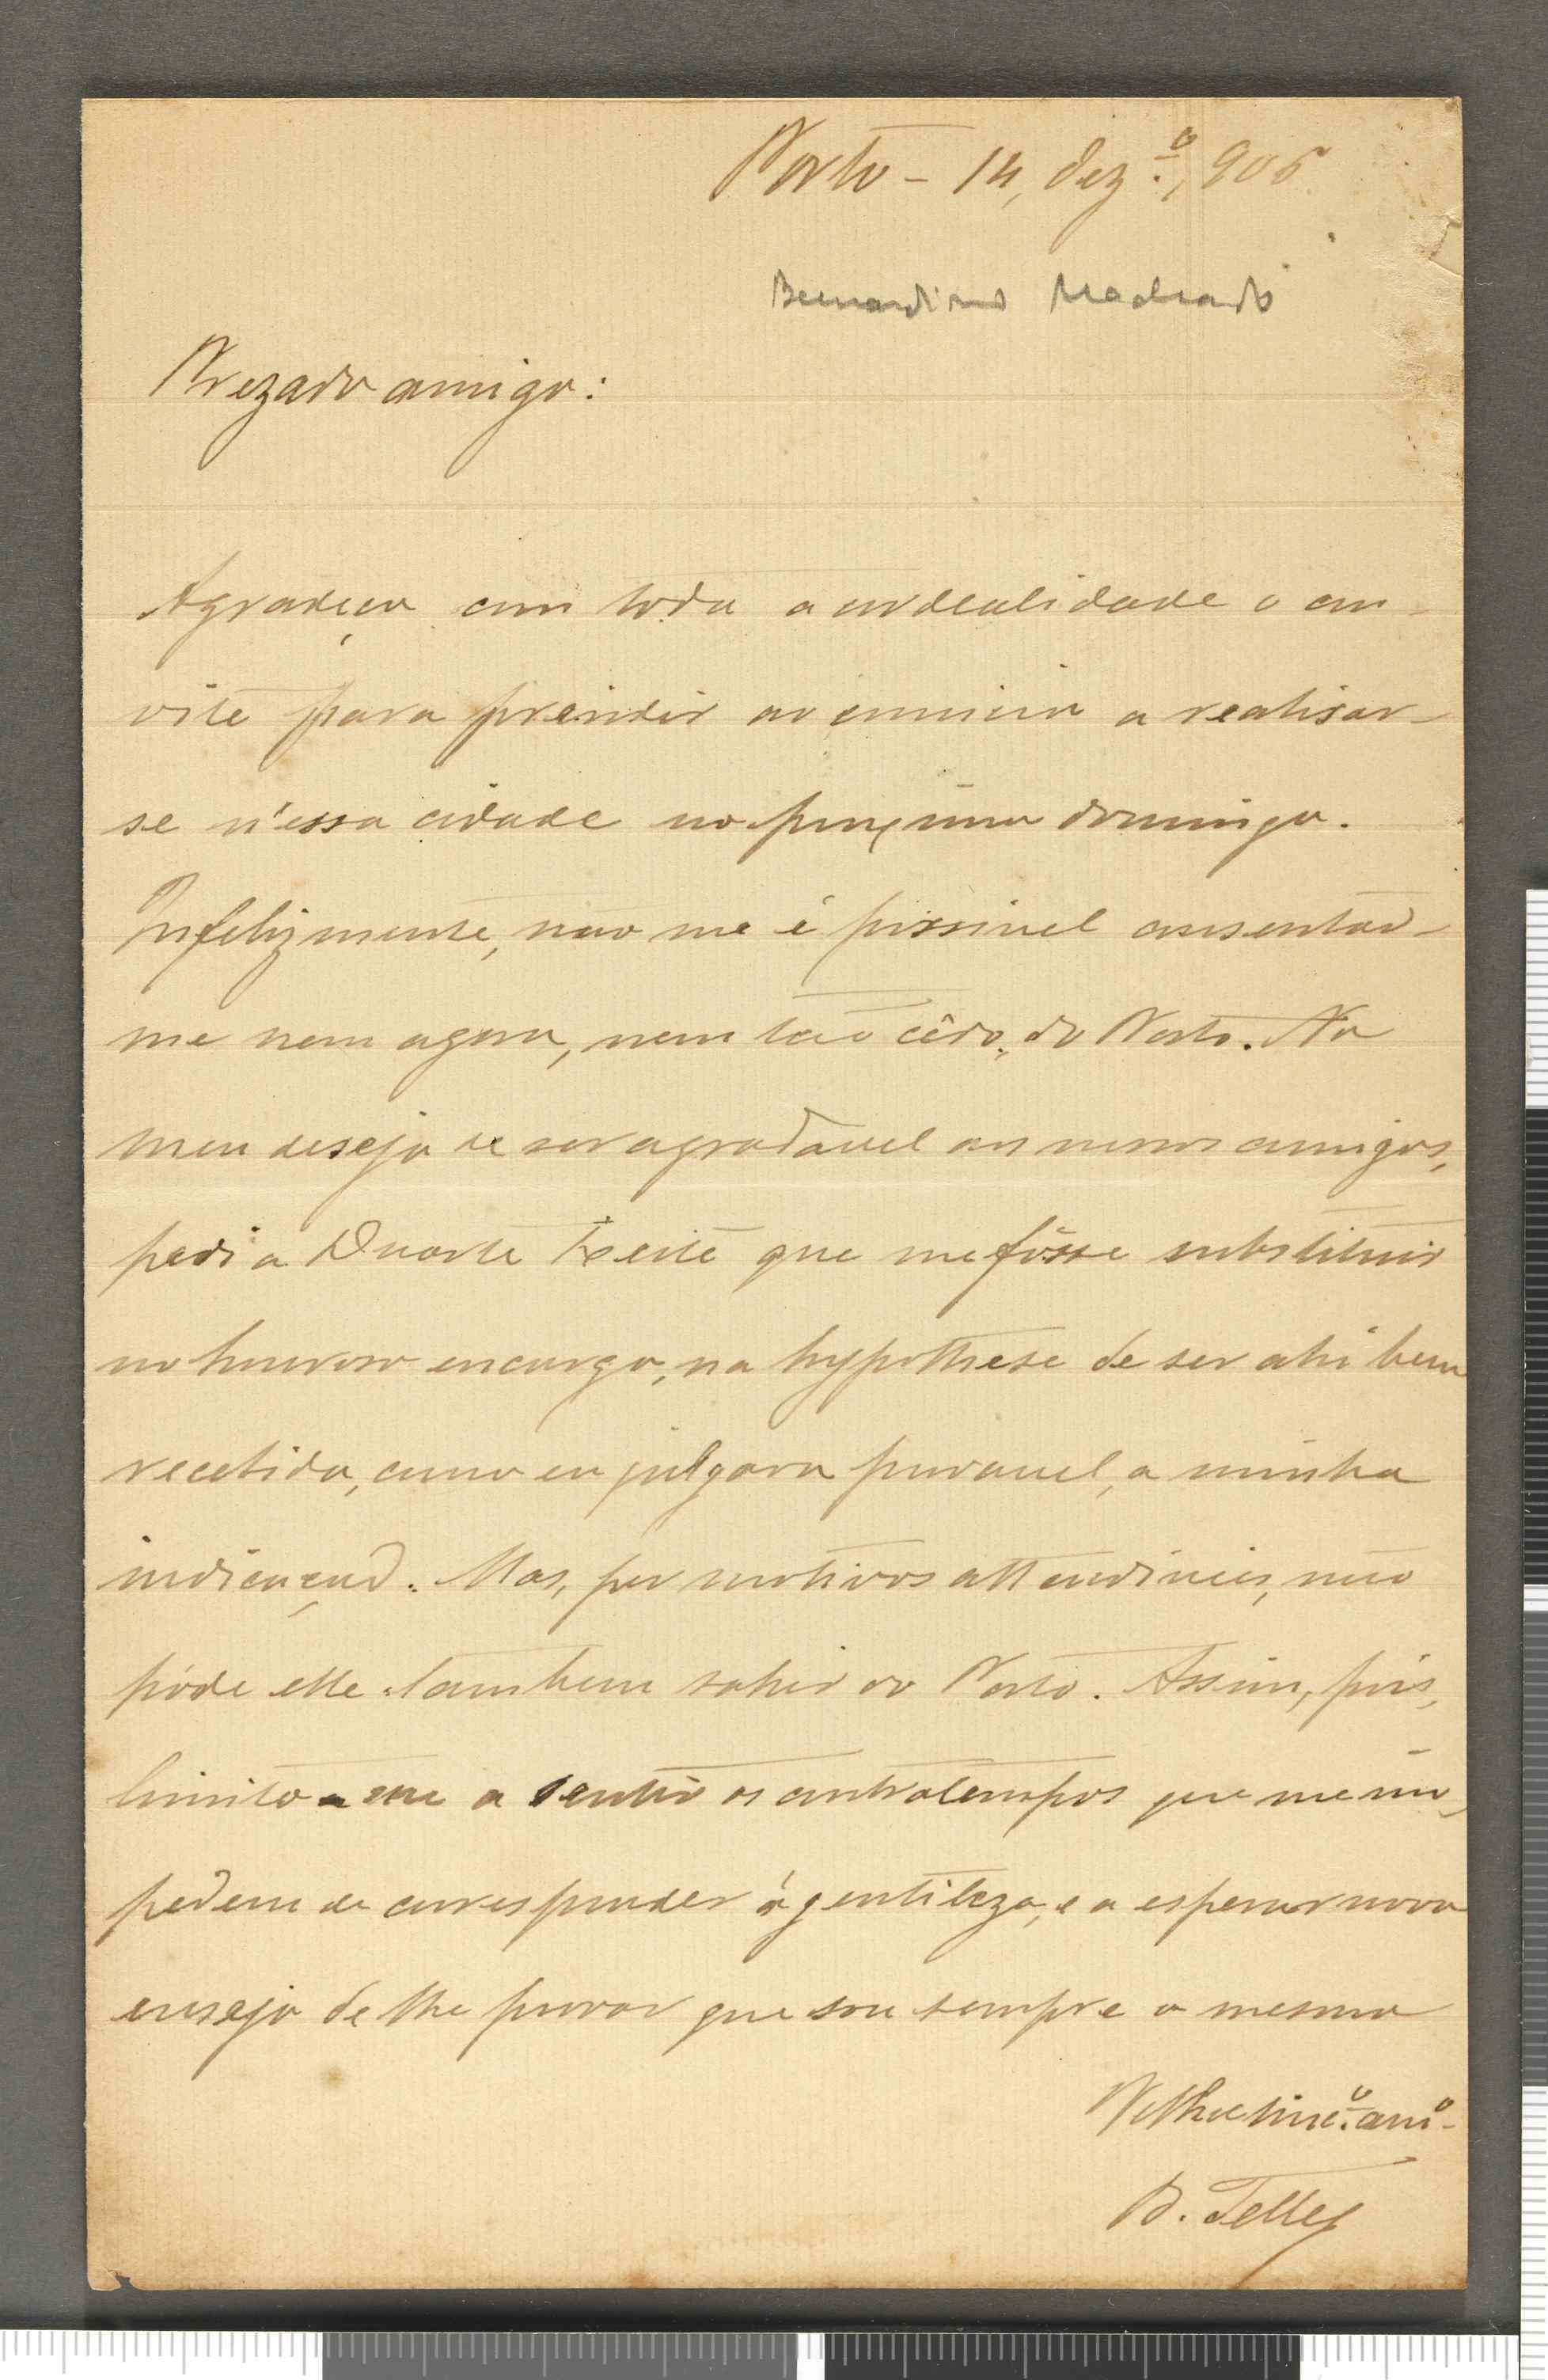 Porto - 14, dez.º, 906
Bernardino Machado
Prezado amigo:
Agradeço com toda a cordealidade o con-
vite para presidir ao comicio a realisar-
se n'essa cidade no proximo domingo.
Infelizmente, não me é possivel ausentar-
me nem agora, nem tão cêdo, do Porto. No
meu desejo de ser agradavel aos nossos amigos,
pedi a Duarte Leite que me fôsse substituir
no honroso encargo, na hypothese de ser ahi bem
recebida, como eu julgava provavel, a minha
indicação. Mas, por motivos attendiveis, não
póde elle tambem sahir do Porto. Assim, pois,
limito-me a sentir os contratempos que me im-
pedem de corresponder á gentileza, e a esperar novo
ensejo de lhe provar que sou sempre o mesmo
Velho am.º
B. Telles